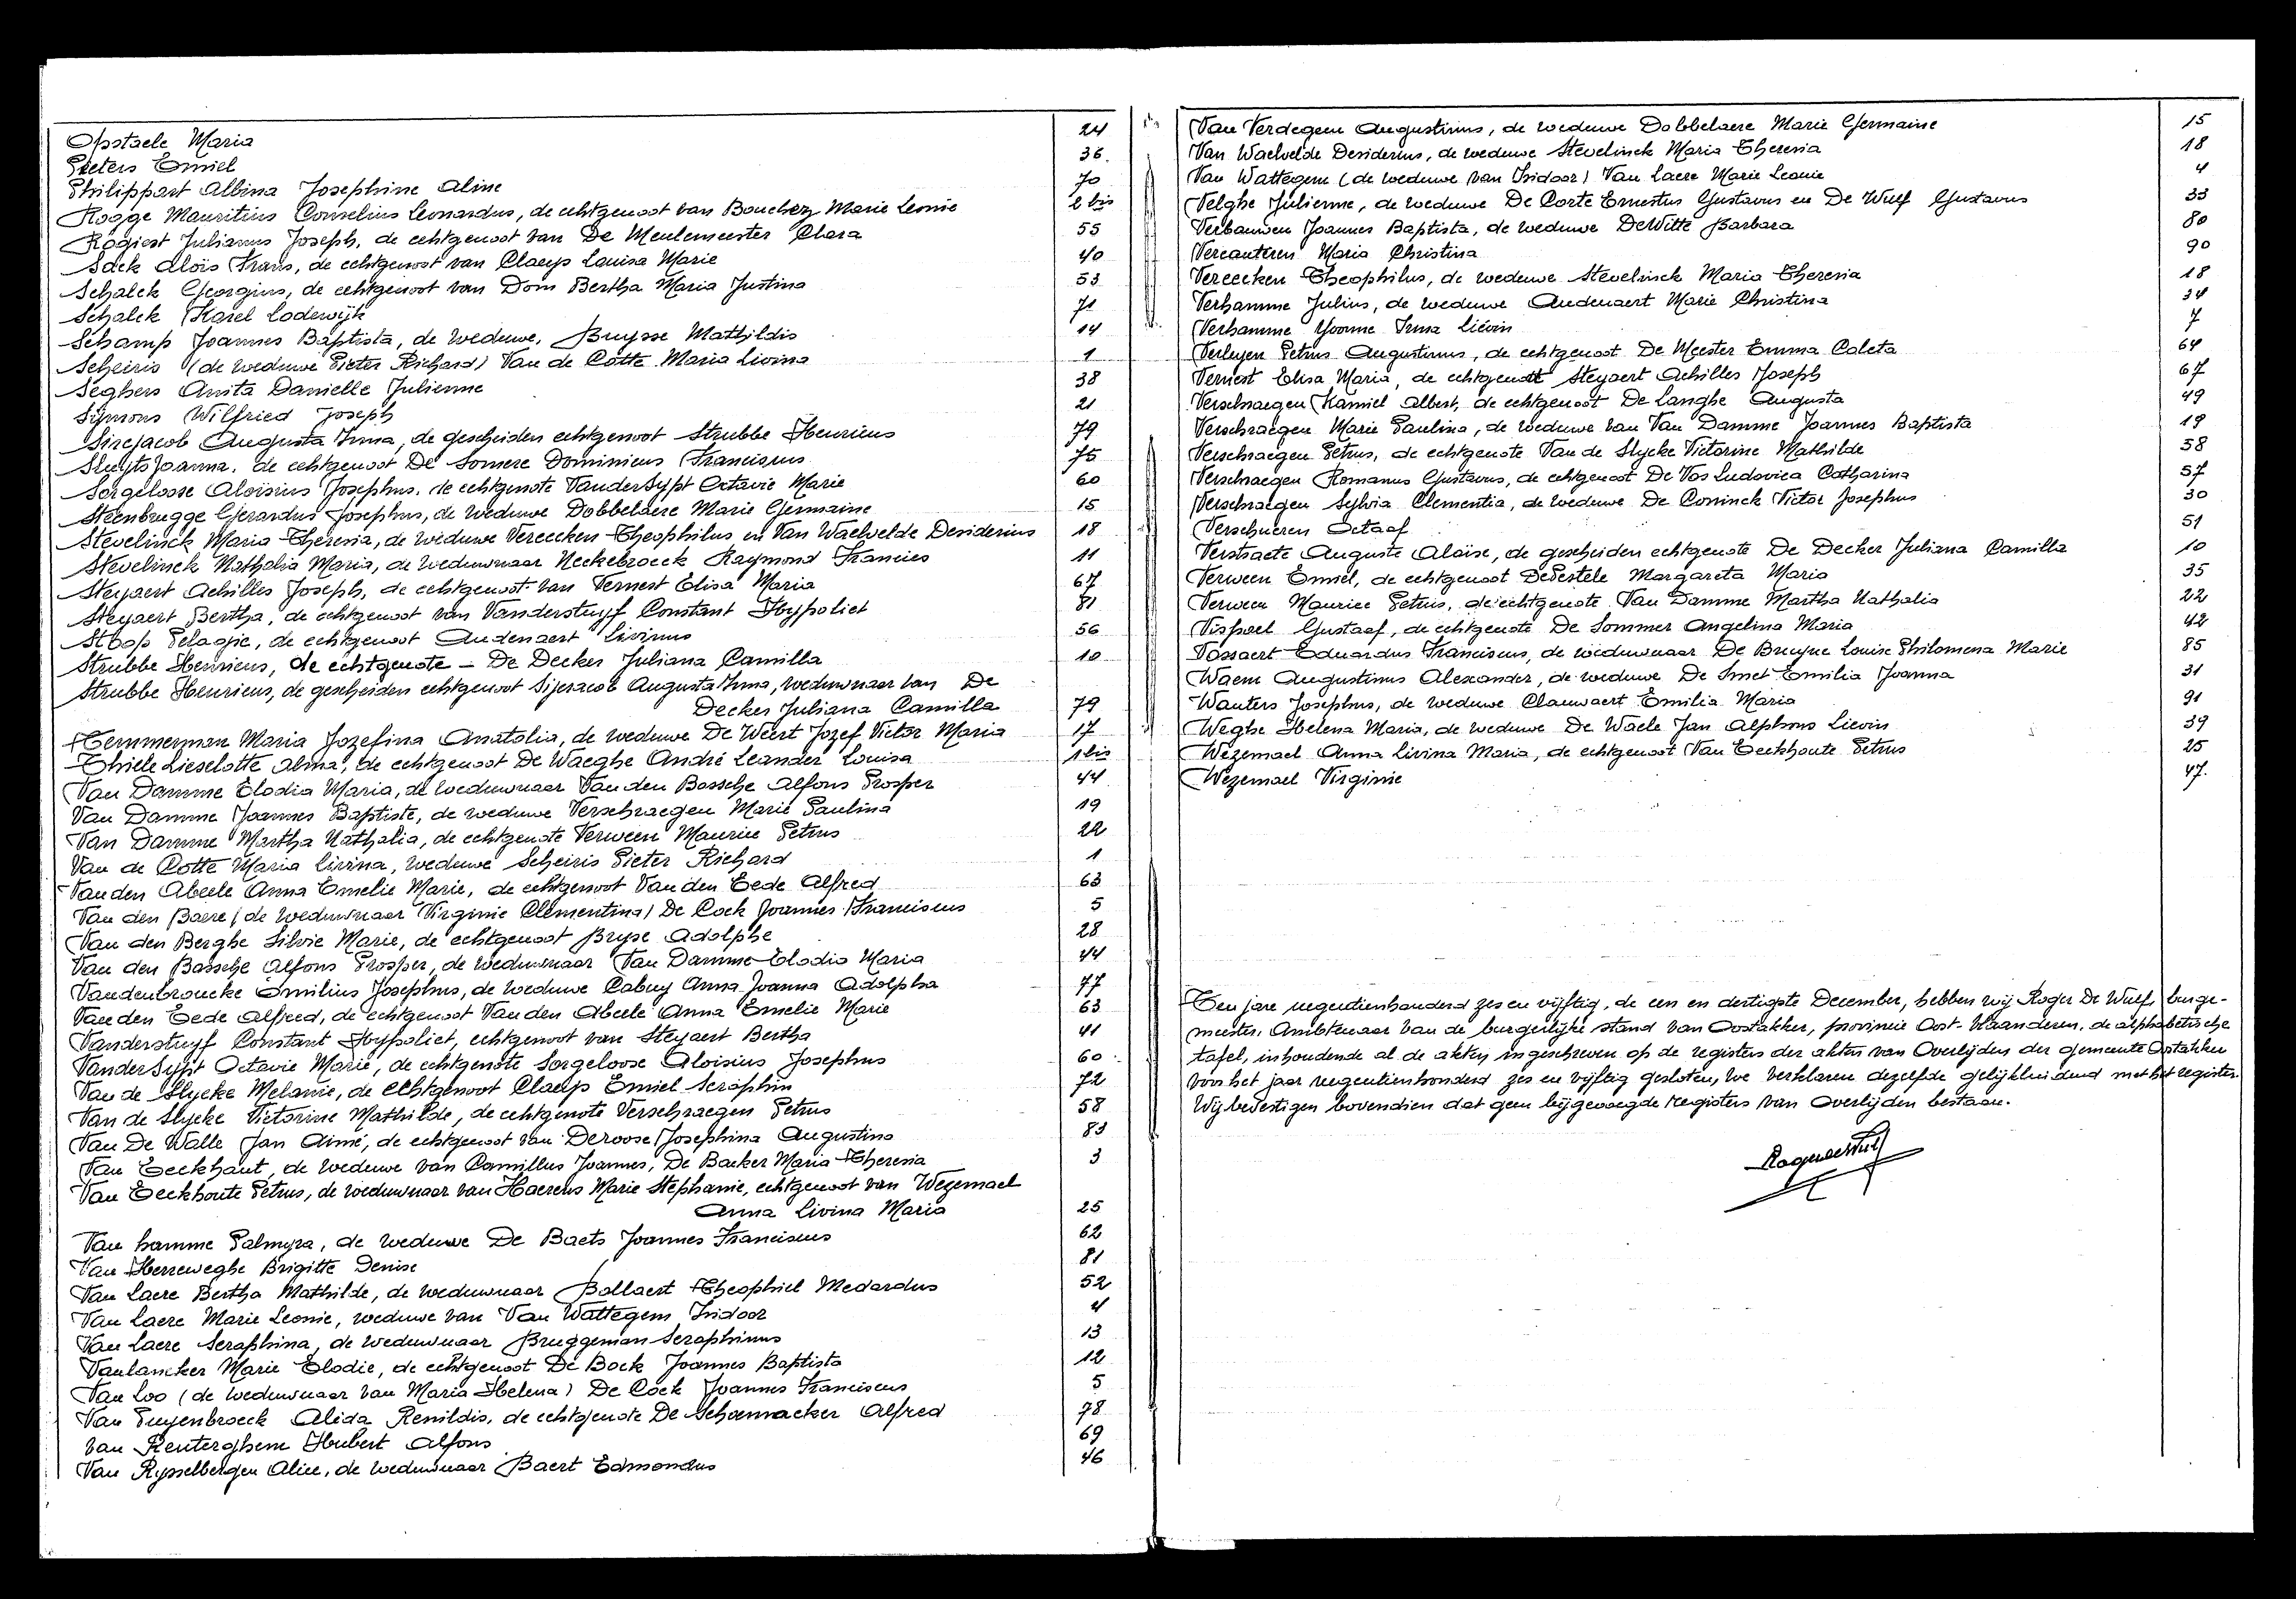 Opstaele Maria 24
Pieters Emiel 36.
Philippart Albina Josephine Aline 70
Rogge Mauritius Cornelius Leonardus, de echtgenoot van Bouchez Marie Leonie 2 bis
Rogiest Julianus Joseph, de echtgenoot van De Meulemeester Clara 55
Sack Aloïs Frans, de echtgenoot van Claeys Louisa Marie 40
Schalck Georgius, de echtgenoot van Dom Bertha Maria Justina 53
Schalck Karel Lodewijk 71
Schamp Joannes Baptista, de weduwe, Buysse Mathildis 14
Scheiris (de weduwe Pieter Richard) Van de Cotte Maria Livina 1
Seghers Anita Danielle Julienne 38
Symons Wilfried Joseph 21
Sirejacob Augusta Irma, de gescheiden echtgenoot Strubbe Henricus 79
Sluyts Joanna, de echtgenoot De Somere Dominicus Franciscus 75
Sorgeloose Aloïsius Josephus, de echtgenote VanderSypt Octavie Marie 60
Steenbrugge Gerardus Josephus, de weduwe Dobbelaere Marie Germaine 15
Stevelinck Maria Theresia, de weduwe Vereecken Theophilus en Van Waelvelde Desiderius 18
Stevelinck Nathalia Maria, de weduwnaar Neckebroeck Raymond Francies 11
Steyaert Achilles Joseph, de echtgenoot van Vernest Elisa Maria 67
Steyaert Bertha, de echtgenoot van Vanderstuyf Constant Hyppoliet 81
Stoop Pelagie, de echtgenoot Audenaert Livinus 56
Strubbe Henricus, de echtgenote - De Decker Juliana Camilla 10
Strubbe Henricus, de gescheiden echtgenoot Sijeracob Augusta Irma, weduwnaar van De
Decker Juliana Camilla 79
Temmerman Maria Jozefina Anatolia, de weduwe De Weert Jozef Victor Maria 17
Thiele Lieselotte Alma, de echtgenoot De Waeghe André Leander Louisa 1 bis
Van Damme Elodia Maria, de weduwnaar Van den Bossche Alfons Prosper 44
Van Damme Joannes Baptiste, de weduwe Verschraegen Marie Paulina 19
Van Damme Martha Nathalia, de echtgenote Verween Maurice Petrus 22
Van de Cotte Maria Livina, weduwe Scheiris Pieter Richard 1
Van den Abeele Anna Emelie Marie, de echtgenoot Van den Eede Alfred 63
Van den Baere (de weduwnaar Virginie Clementina) De Cock Joannes Franciscus 5
Van den Berghe Silvie Marie, de echtgenoot Bryse Adolphe 28
Van den Bossche Alfons Prosper, de weduwnaar Van Damme Elodia Maria 44
Vandenbroucke Emilius Josephus, de weduwe Cabuy Anna Joanna Adolpha 77
Van den Eede Alfred, de echtgenoot Van den Abeele Anna Emelie Marie 63
Vanderstuyf Constant Hyppoliet, echtgenoot van Steyaert Bertha 41
VanderSypt Octavie Marie, de echtgenote Sorgeloose Aloisius Josephus 60
Van de Slycke Melanie, de echtgenoot Claeys Emiel Seraphin 72
Van de Slycke Victorine Mathilde, de echtgenote Verschraegen Petrus 58
Van De Walle Jan Aimé, de echtgenoot van Deroose Josephina Augustina 83
Van Eeckhaut, de weduwe van Camillus Joannes, De Backer Maria Theresia 3
Van Eeckhoute Petrus, de weduwnaar van Haerens Marie Stephanie, echtgenoot van Wezemael
Anna Livina Maria 25
Van hamme Palmyra, de weduwe De Baets Joannes Franciscus 62
Van Herreweghe Brigitte Denise 81
Van Laere Bertha Mathilde, de weduwnaar Bollaert Theophiel Medardus 52
Van Laere Marie Leonie, weduwe van Van Wattegem Isidoor 4
Van Laere Seraphina, de weduwnaar Bruggeman Seraphinus 13
Vanlancker Marie Elodie, de echtgenoot De Bock Joannes Baptista 12
Van Loo (de weduwnaar van Maria Helena) De Cock Joannes Franciscus 5
Van Puyenbroeck Alida Renildis, de echtgenote De Schoenmacker Alfred 78
Van Renterghem Hubert Alfons 69
Van Rysselbergen Alice, de weduwnaar Baert Edmondus 46
Van Verdegem Augustinus, de weduwe Dobbelaere Marie Germaine 15
Van Waelvelde Desiderius, de weduwe Stevelinck Maria Theresia 18
Van Wattegem (de weduwe van Isidoor) Van Laere Marie Leonie 4
Velghe Julienne, de weduwe De Corte Ernestus Gustavus en De Wulf Gustavus 33
Verbauwen Joannes Baptista, de weduwe DeWitte Barbara 80
Vercauteren Maria Christina 90
Vereecken Theophilus, de weduwe Stevelinck Maria Theresia 18
Verhamme Julius, de weduwe Audenaert Marie Christina 34
Verhamme Yvonne Irma Lievin 7
Verleyen Petrus Augustinus, de echtgenoot De Meester Emma Coleta 64
Vernest Elisa Maria, de echtgenoot Steyaert Achilles Joseph 67
Verschraegen Kamiel Albert, de echtgenoot De Langhe Augusta 49
Verschraegen Marie Paulina, de weduwe van Van Damme Joannes Baptista 19
Verschraegen Petrus, de echtgenote Van de Slycke Victorine Mathilde 58
Verschraegen Romanus Gustavus, de echtgenoot De Vos Ludovica Catharina 57
Verschraegen Sylvia Clementia, de weduwe De Coninck Victor Josephus 30
Verschueren Octaaf 51
Verstraete Auguste Aloïse, de gescheiden echtgenote De Decker Juliana Camilla 10
Verween Emiel, de echtgenoot DePestele Margareta Maria 35
Verween Maurice Petrus, de echtgenote Van Damme Martha Nathalia 22
Vispoel Gustaaf, de echtgenote De Sommer Angelina Maria 42
Vossaert Eduardus Franciscus, de weduwnaar De Bruyne Louise Philomena Marie 85
Waem Augustinus Alexander, de weduwe De Smet Emilia Joanna 31
Wauters Josephus, de weduwe Clauwaert Emilia Maria 91
Weghe Helena Maria, de weduwe De Waele Jan Alphons Lievin 39
Wezemael Anna Livina Maria, de echtgenoot Van Eeckhoute Petrus 25
Wezemael Virginie 47.
Ten jare negentienhonderd zes en vijftig, de een en dertigste December, hebben wij Roger De Wulf, burge-
meester, Ambtenaar van de burgerlijke stand van Oostakker, provincie Oost-Vlaanderen, de alphabetische
tafel, inhoudende al de akten ingeschreven op de registers der akten van Overlijden der gemeente Oostakker
voor het jaar negentienhonderd zes en vijftig gesloten, we verklaren dezelfde gelijkluidend met het register.
Wij bevestigen bovendien dat geen bijgevoegde registers van Overlijden bestaan.